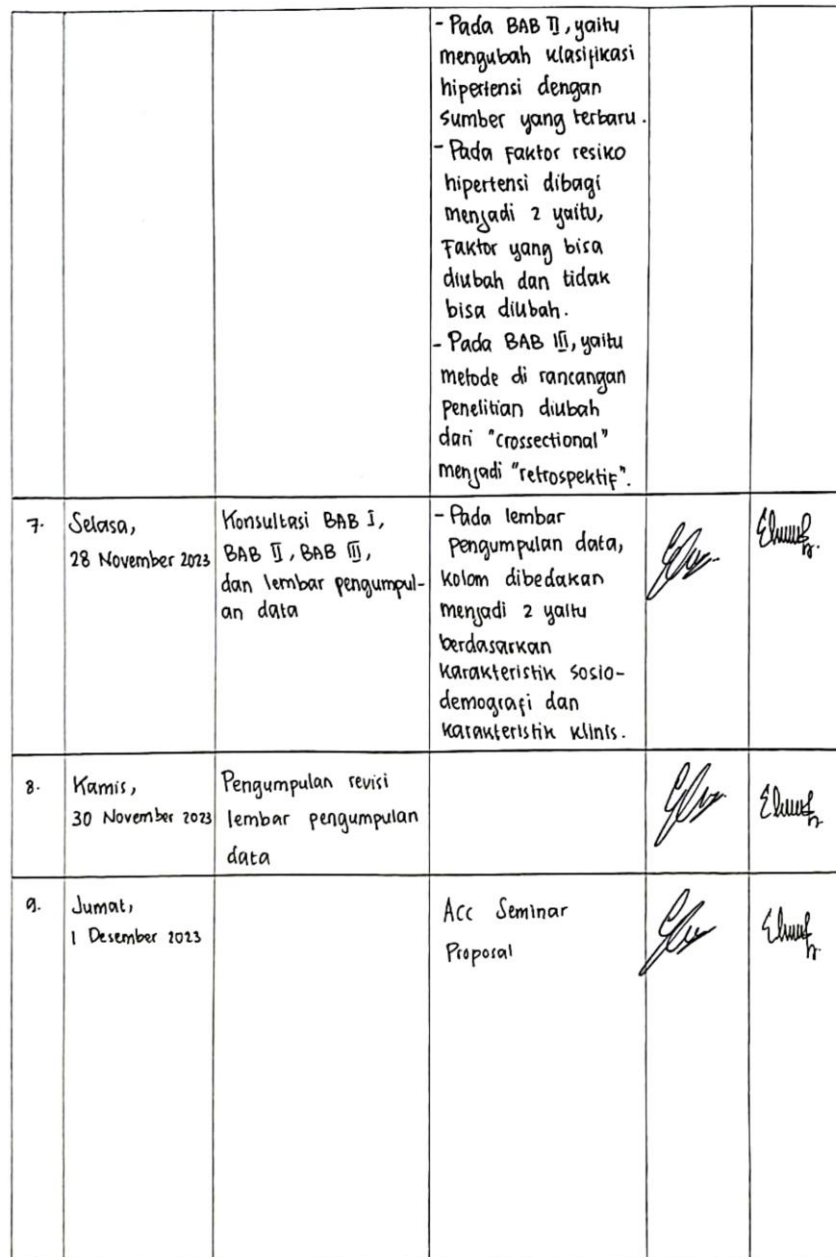 - Pada BAB II, yaitu
mengubah klasifikasi
hipertensi dengan
sumber yang terbaru.
- Pada Faktor resiko
hipertensi dibagi
menjadi 2 yaitu,
Faktor yang bisa
diubah dan tidak
bisa diubah.
- Pada BAB III, yaitu
metode di rancangan
penelitian diubah
dari "crossectional"
menjadi "retrospektif".
7.
Selasa,
28 November 2023
Konsultasi BAB I,
BAB II, BAB III,
dan lembar pengumpul-
an data
- Pada lembar
pengumpulan data,
kolom dibedakan
menjadi 2 yaitu
berdasarkan
karakteristik sosio-
demografi dan
karakteristik klinis.
8.
Kamis,
30 November 2023
Pengumpulan revisi
lembar pengumpulan
data
9.
Jumat,
1 Desember 2023
Acc Seminar
Proposal